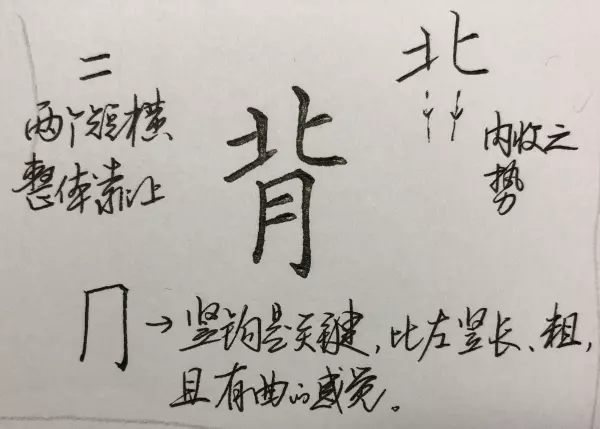 二
两个短横
整体靠上
背
北
内收之
势
冂→竖钩是关键,比左竖长、粗,
且有曲的感觉。